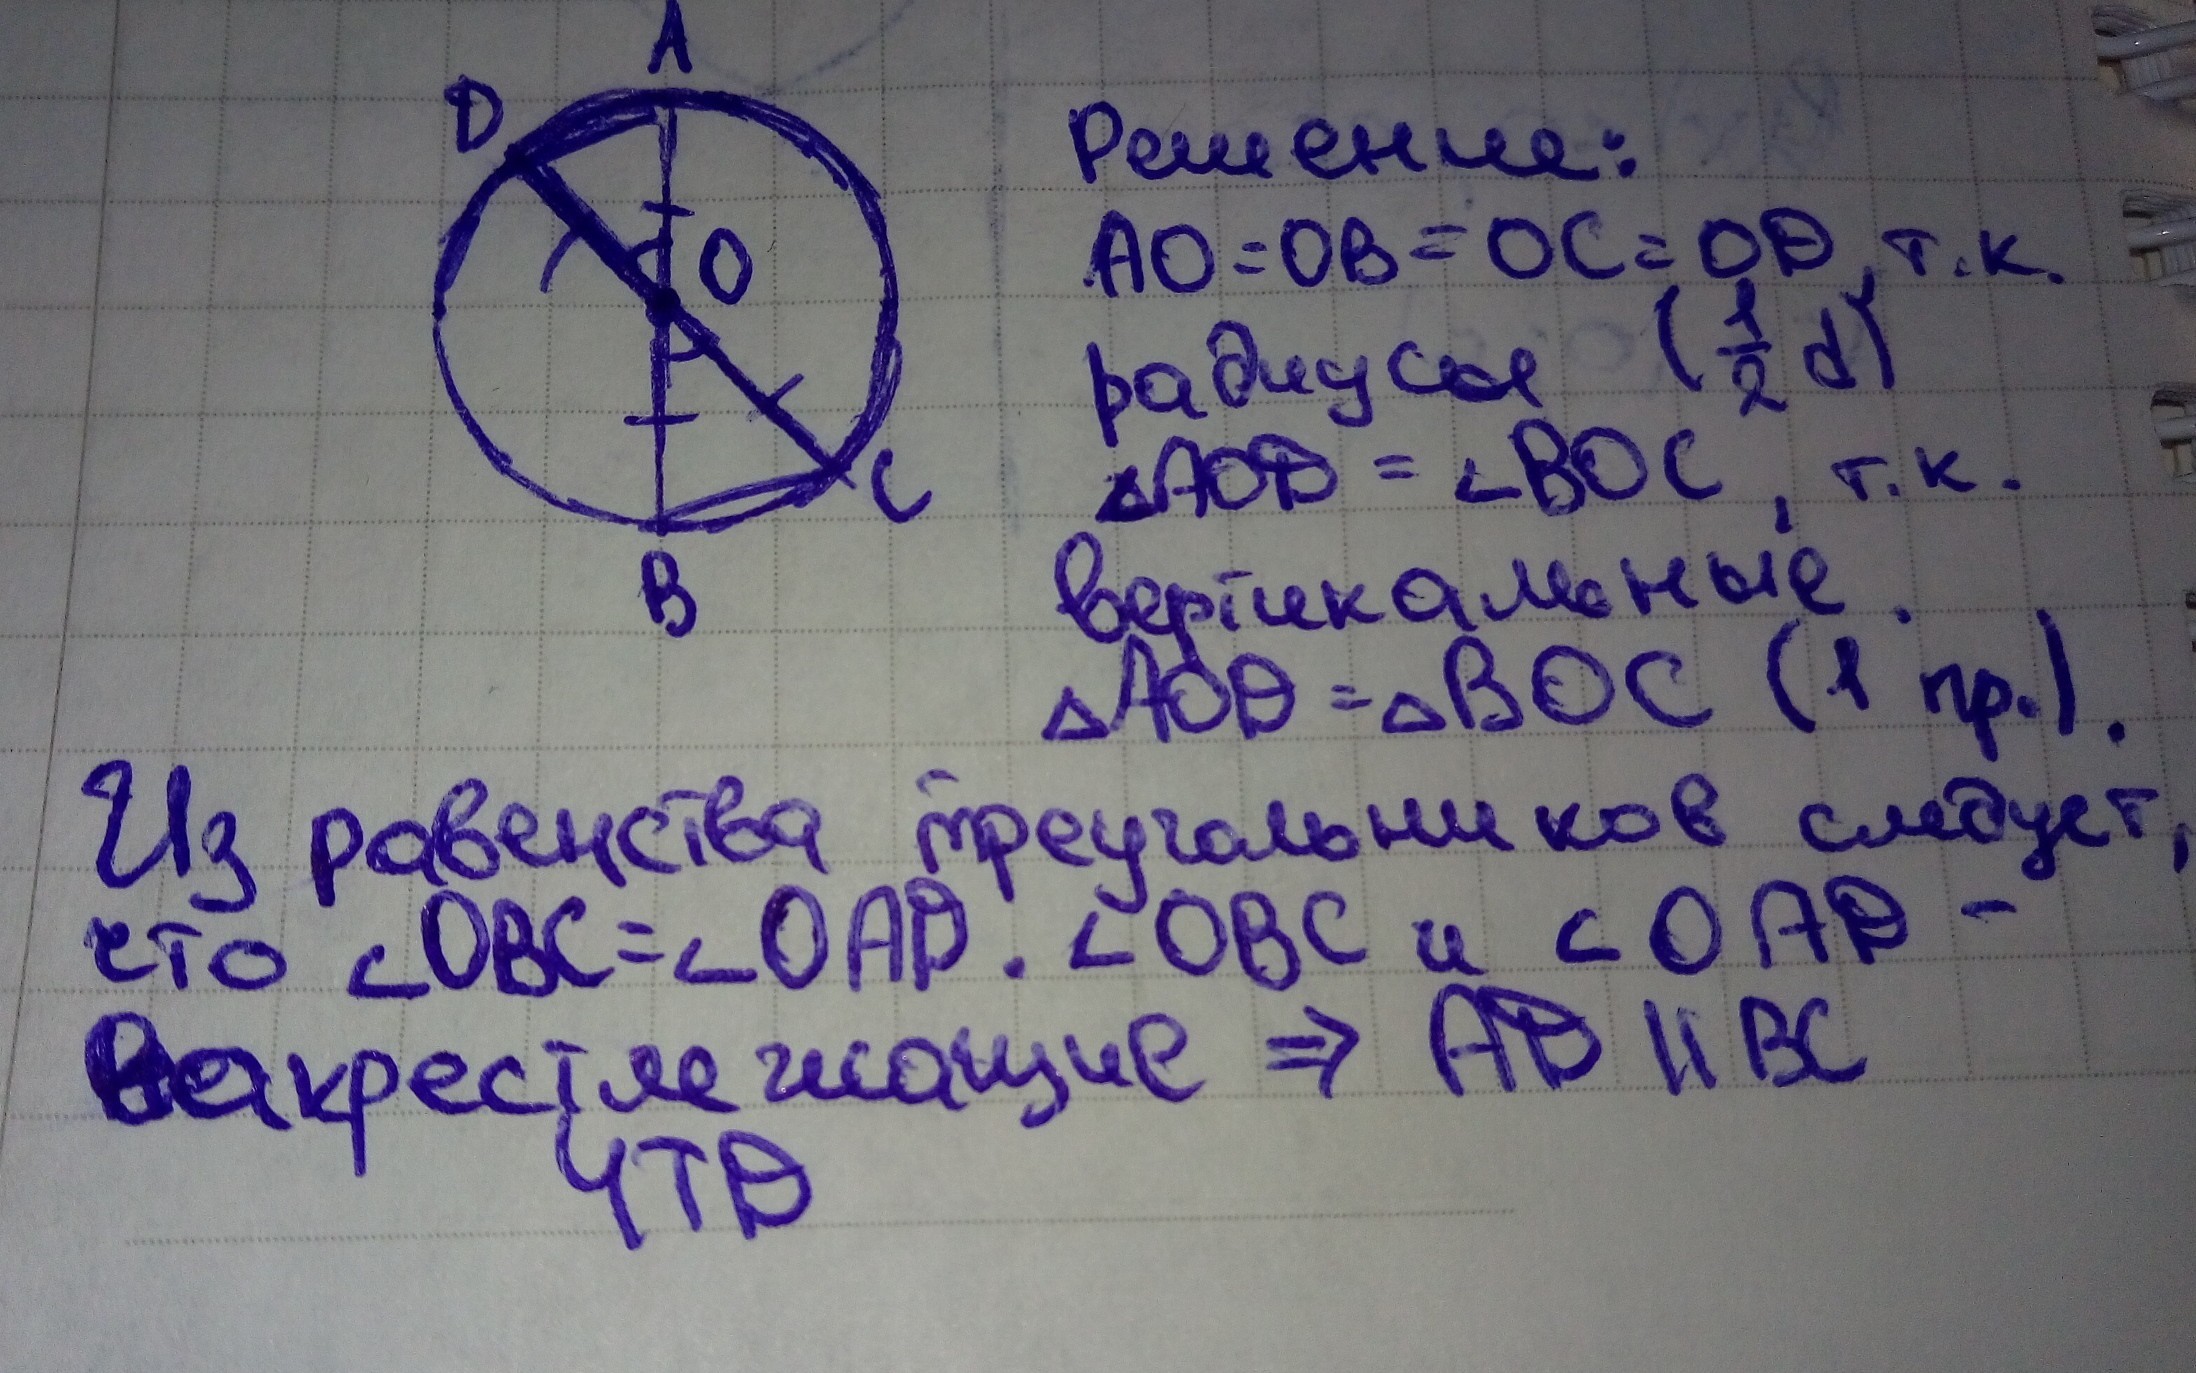 A
D
O
C
B
Решение:
AO=OB=OC=OD, т.к.
радиусы (1/2 d)
∆AOD = ∠BOC, т.к.
вертикальные.
∆AOD = ∆BOC (1 пр.).
Из равенства треугольников следует,
что ∠OBC=∠OAD. ∠OBC и ∠OAD -
накрестлежащие ⇒ AD || BC
ЧТД